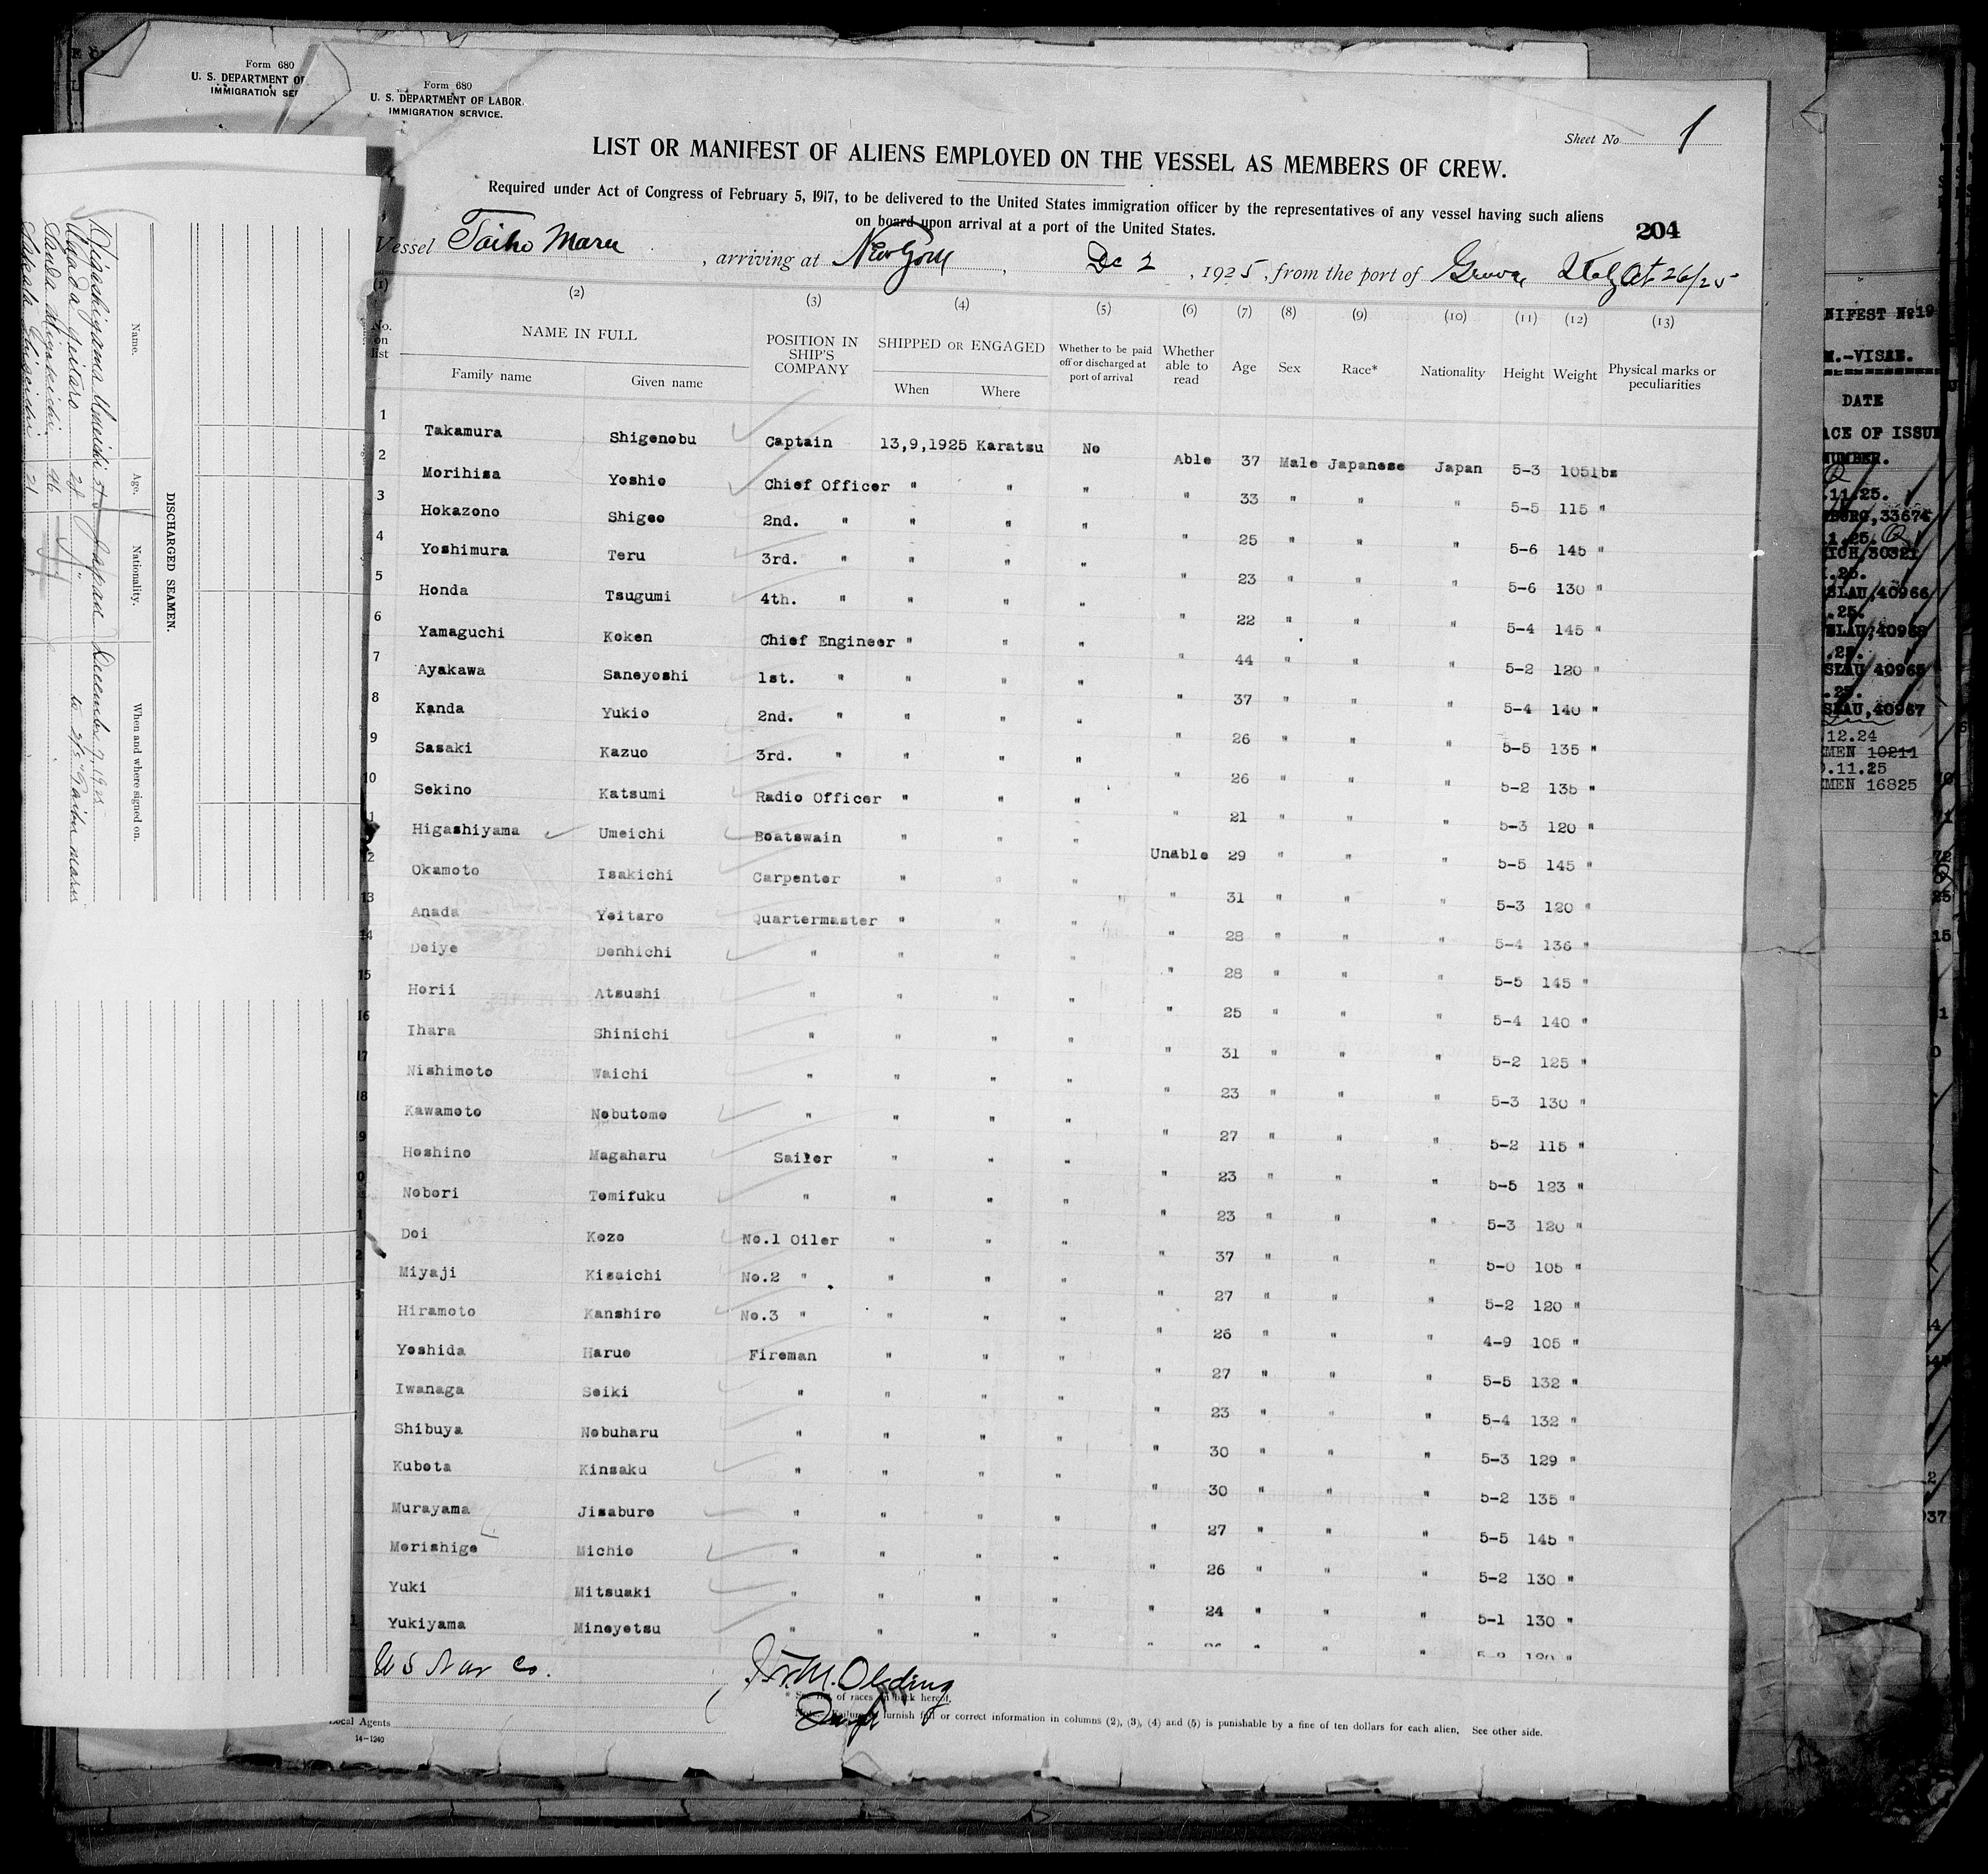 Form 680
U. S. DEPARTMENT OF
IMMIGRATION SER
Form 680
U. S. DEPARTMENT OF LABOR
IMMIGRATION SERVICE.
Sheet No. 1
LIST OR MANIFEST OF ALIENS EMPLOYED ON THE VESSEL AS MEMBERS OF CREW.
Required under Act of Congress of February 5, 1917, to be delivered to the United States immigration officer by the representatives of any vessel having such aliens
on board upon arrival at a port of the United States.
204
Vessel Taiho Maru, arriving at New York, Dec 2, 1925, from the port of Genova, Italy Oct 26/25
(1) (2) (3) (4) (5) (6) (7) (8) (9) (10) (11) (12) (13)
No. on list NAME IN FULL Family name Given name POSITION IN SHIP'S COMPANY SHIPPED OR ENGAGED When Where Whether to be paid off or discharged at port of arrival Whether able to read Age Sex Race* Nationality Height Weight Physical marks or peculiarities
1 Takamura Shigenobu Captain 13,9,1925 Karatsu No Able 37 Male Japanese Japan 5-3 105lbs
2 Morihisa Yoshio Chief Officer " " " " 33 " " " 5-5 115 "
3 Hokazono Shigeo 2nd. " " " " " 25 " " " 5-6 145 "
4 Yoshimura Teru 3rd. " " " " " 23 " " " 5-6 130 "
5 Honda Tsugumi 4th. " " " " " 22 " " " 5-4 145 "
6 Yamaguchi Koken Chief Engineer " " " " 44 " " " 5-2 120 "
7 Ayakawa Saneyoshi 1st. " " " " " 37 " " " 5-4 140 "
8 Kanda Yukio 2nd. " " " " " 26 " " " 5-5 135 "
9 Sasaki Kazuo 3rd. " " " " " 26 " " " 5-2 135 "
10 Sekino Katsumi Radio Officer " " " " 21 " " " 5-3 120 "
11 Higashiyama Umeichi Boatswain " " " Unable 29 " " " 5-5 145 "
12 Okamoto Isakichi Carpenter " " " " 31 " " " 5-3 120 "
13 Anada Yeitaro Quartermaster " " " " 28 " " " 5-4 136 "
14 Deiye Denhichi " " " " " 28 " " " 5-5 145 "
15 Horii Atsushi " " " " " 25 " " " 5-4 140 "
16 Ihara Shinichi " " " " " 31 " " " 5-2 125 "
17 Nishimoto Waichi " " " " " 23 " " " 5-3 130 "
18 Kawamoto Nobutomo " " " " " 27 " " " 5-2 115 "
9 Hoshino Magaharu Sailor " " " " 23 " " " 5-5 123 "
0 Nobori Tomifuku " " " " " 23 " " " 5-3 120 "
1 Doi Kozo No.1 Oiler " " " " 37 " " " 5-0 105 "
2 Miyaji Kisaichi No.2 " " " " " 27 " " " 5-2 120 "
3 Hiramoto Kanshiro No.3 " " " " " 26 " " " 4-9 105 "
4 Yoshida Haruo Fireman " " " " 27 " " " 5-5 132 "
Iwanaga Seiki " " " " " 23 " " " 5-4 132 "
Shibuya Nobuharu " " " " " 30 " " " 5-3 129 "
Kubota Kinsaku " " " " " 30 " " " 5-2 135 "
Murayama Jisaburo " " " " " 27 " " " 5-5 145 "
Morishige Michio " " " " " 26 " " " 5-2 130 "
Yuki Mitsuaki " " " " " 24 " " " 5-1 130 "
Yukiyama Mineyetsu " " " " " " " "
U S Nav Co.
* See list of races on back hereof.
Note.—Failure to furnish full or correct information in columns (2), (3), (4) and (5) is punishable by a fine of ten dollars for each alien. See other side.
Local Agents
14-1240
DISCHARGED SEAMEN.
Name. Age. Nationality. When and where signed on.
Higashiyama Umeichi Japan December 9, 1925
Anada Yeitaro 28 " to s/s "Taihu Maru
Sanda
Sakata 21
NIFEST No 19
M.-VISAE.
DATE
ACE OF ISSUE
NUMBER.
.11.25.
BURG,33674
1.25.
ICH,30321
.25.
SLAU,40966
.25.
SLAU,40968
.25.
SLAU 40965
.25.
SLAU,40967
12.24
EMEN 10211
.11.25
EMEN 16825